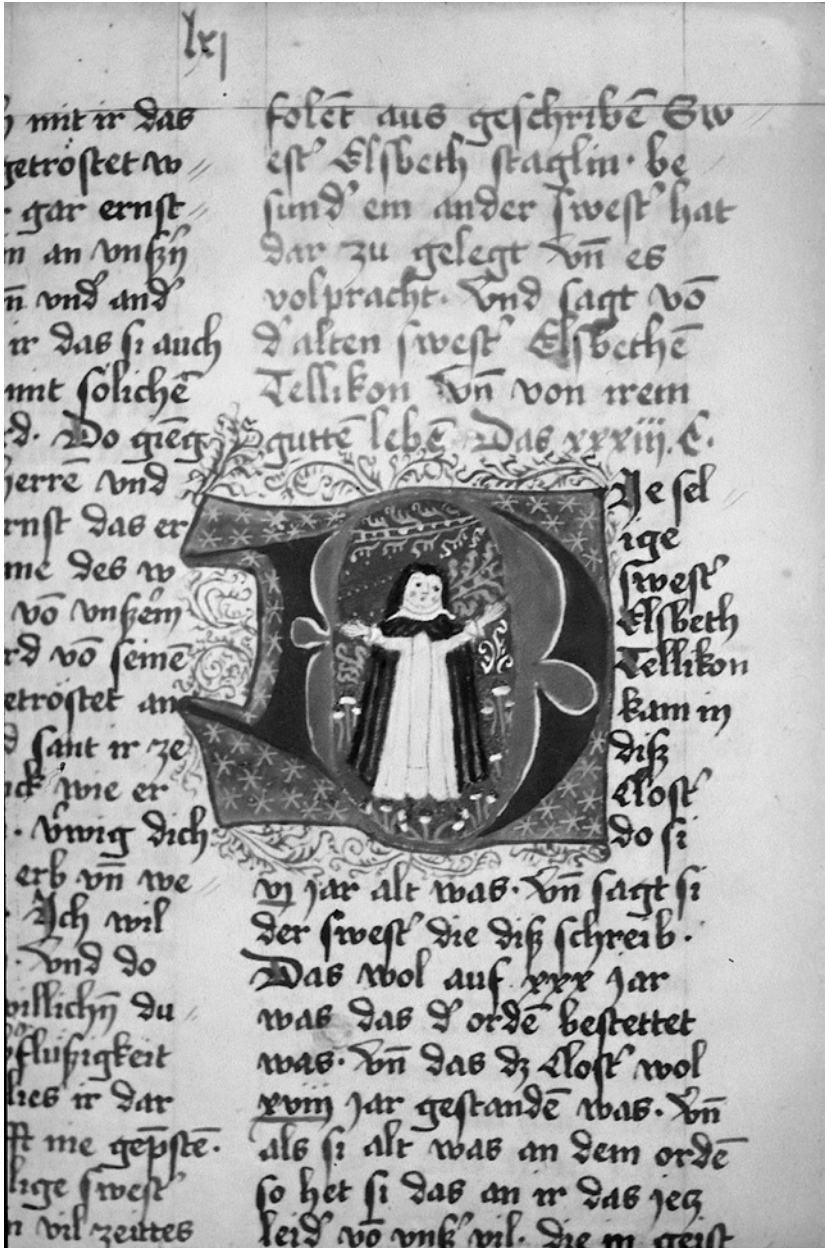 lxj
mit ir das
getröstet w
gar ernst
an vnßn̄
vnd' and'
ir das si auch
mit sölichē
Do gieng
herrē vnd
ernst das er
des w
vō vnßem
vō seinē
getröstet an
sant ir ze
wie er
v̈wig dich
erb vn̄ we
Ich wil
vnd do
willichn̄ du
flüßigkeit
lies ir dar
me gepstē·
swest'
vil zeittes
folēt aus geschribē Sw
est' Elsbeth staglin· be
sund' ein ander swest' hat
dar zu gelegt vn̄ es
volpracht· vnd sagt vō
d' alten swest' Elsbethē
Tellikon vn̄ von irem
guttē lebē Das xxxiii. C.
DIe sel
ige
swest'
Elsbeth
Tellikon
kam in
diß
Clost'
do si
vj jar alt was· vn̄ sagt si
der swest' die diß schreib·
Das wol auf xxx jar
was das d' ordē bestettet
was· vn̄ das dz Clost' wol
xviij jar gestandē was· vn̄
als si alt was an dem ordē
so het si das an ir das jecz
leid' vō vnß' vil· die in geist